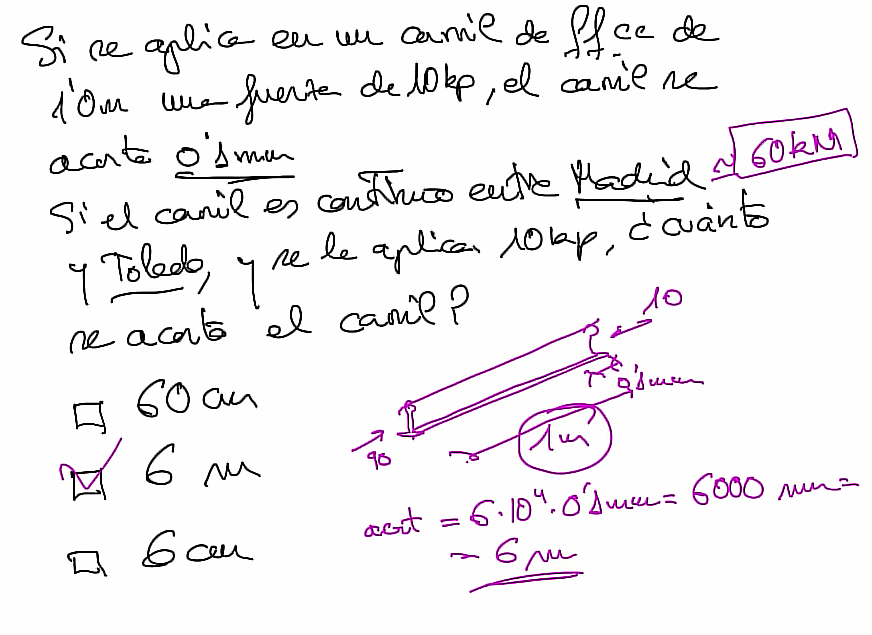 Si se aplica en un carril de ff.cc de
1'0m una fuerza de 10kp, el carril se
acorta 0'1mm
Si el carril es continuo entre Madrid ~ 60kM
y Toledo, y se le aplica 10kp, ¿cuánto
se acorta el carril?
10
0'1mm
60 cm
1m
10
6 m
acort = 6·10⁴·0'1mm = 6000 mm =
= 6 m
6 cm